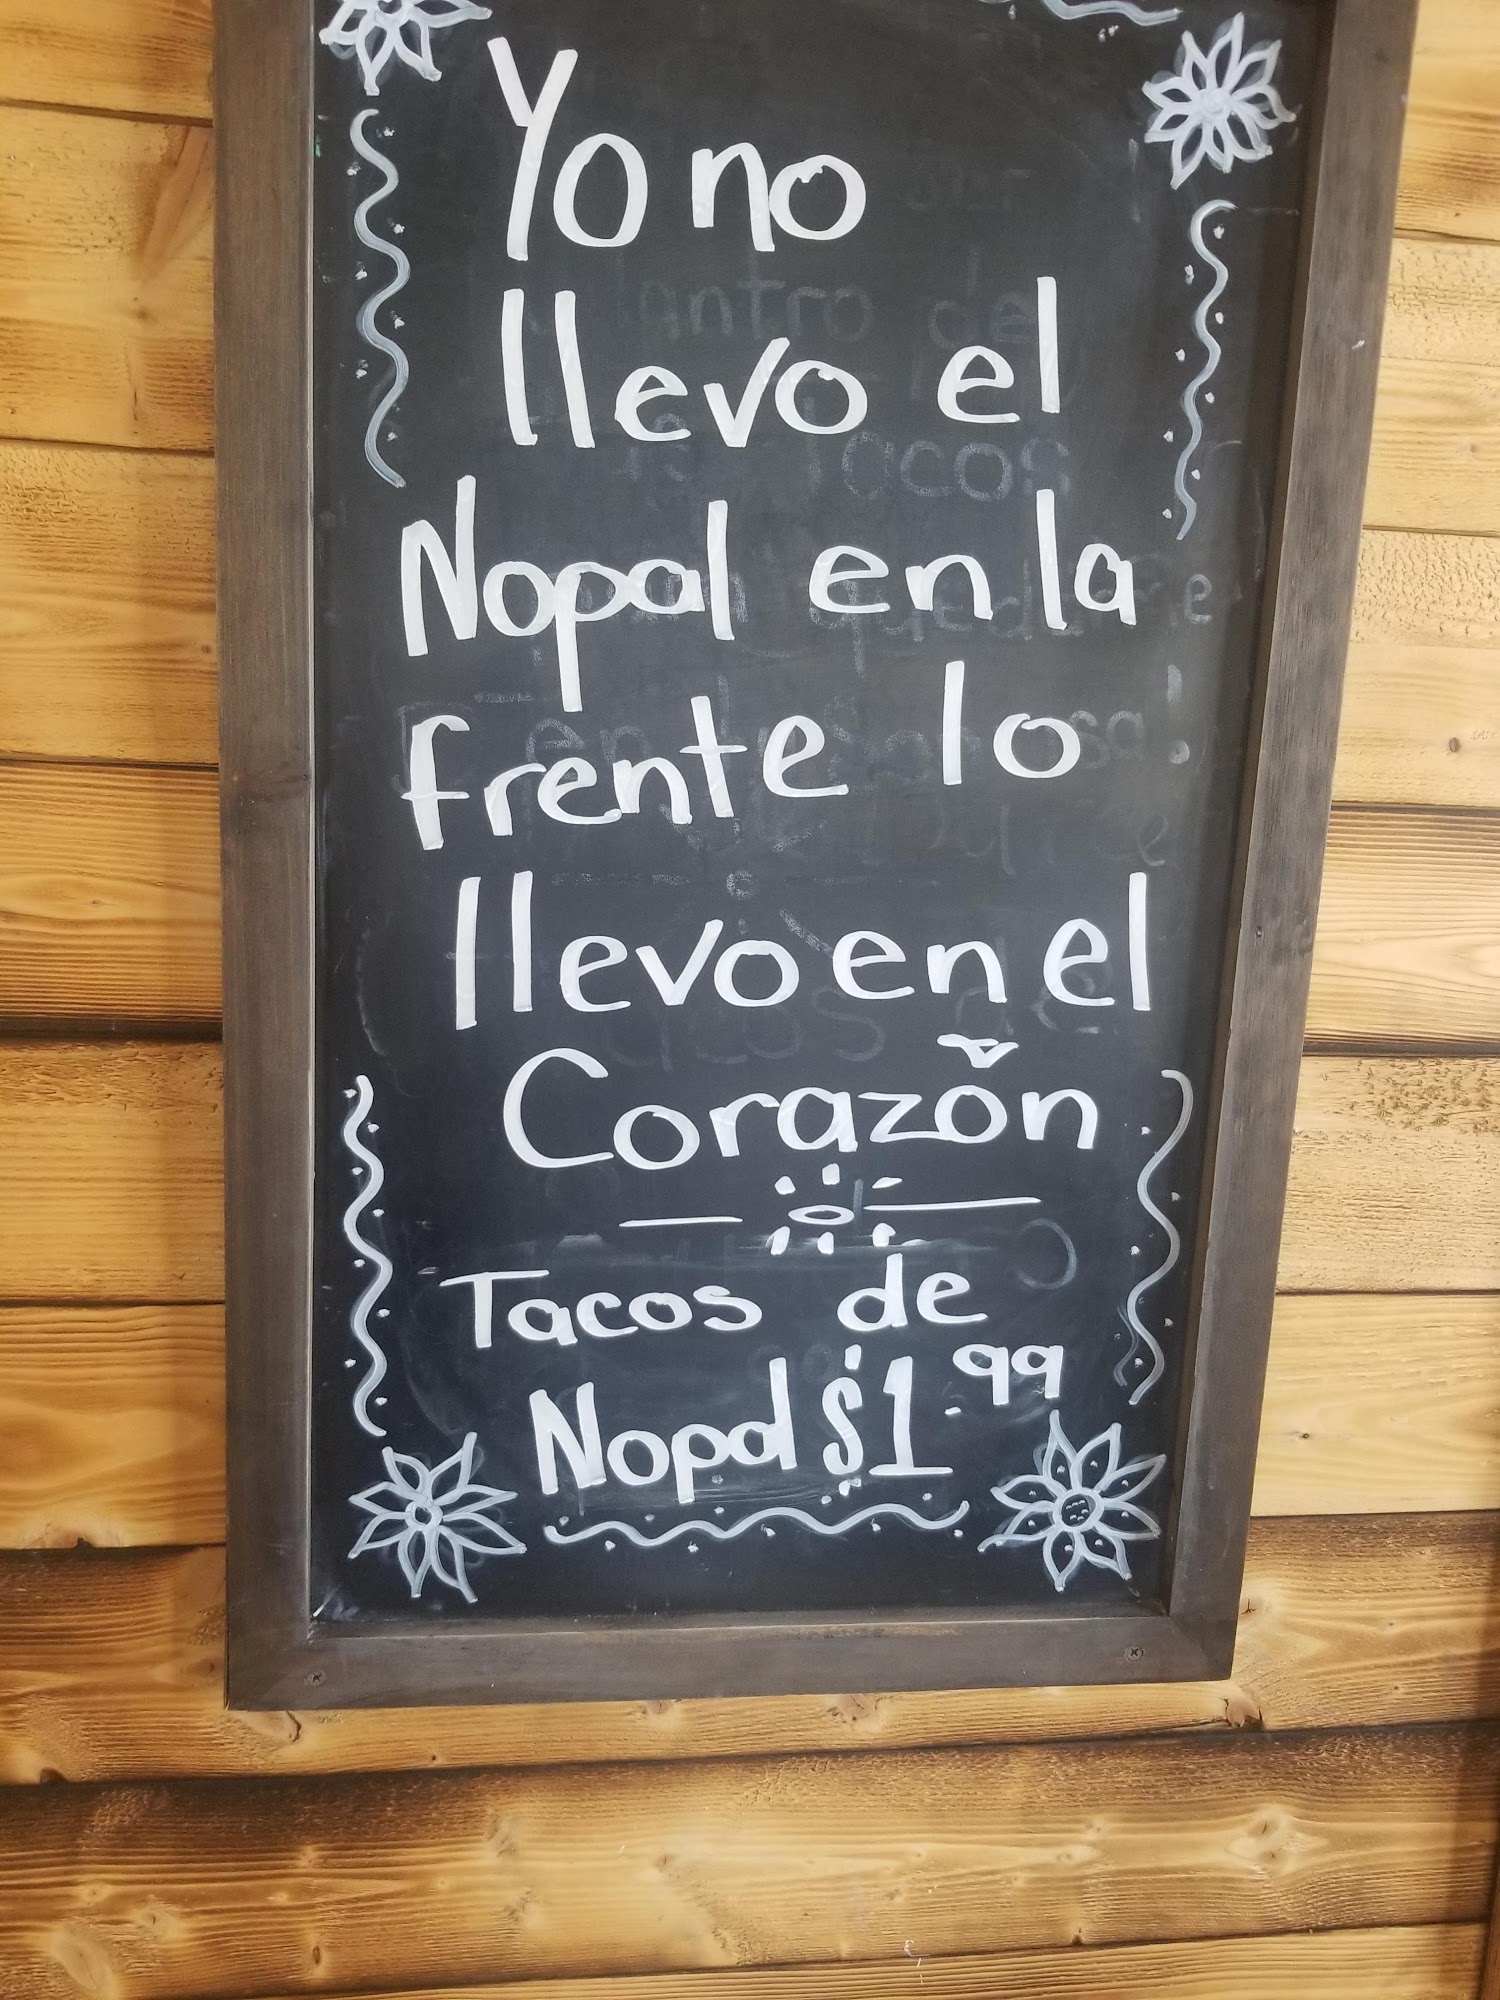 Yo no
llevo el
Nopal en la
frente lo
llevo en el
Corazón
Tacos de
Nopal $1.99